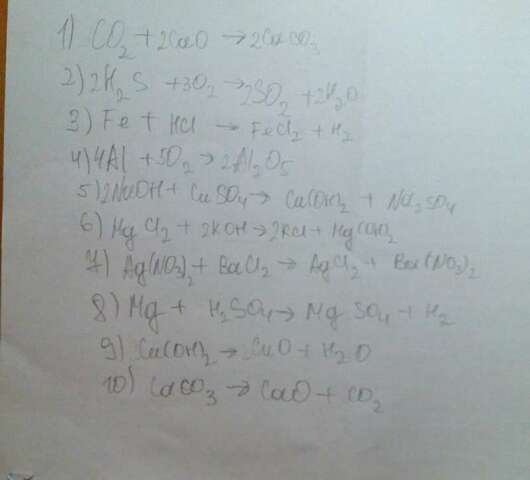 1) CO2 + 2CaO → 2CaCO3
2) 2H2S + 3O2 → 2SO2 + 2H2O
3) Fe + HCl → FeCl2 + H2
4) 4Al + 5O2 → 2Al2O5
5) 2NaOH + CuSO4 → Cu(OH)2 + Na2SO4
6) MgCl2 + 2KOH → 2KCl + Mg(OH)2
7) Ag(NO3)2 + BaCl2 → AgCl2 + Ba(NO3)2
8) Mg + H2SO4 → MgSO4 + H2
9) Cu(OH)2 → CuO + H2O
10) CaCO3 → CaO + CO2